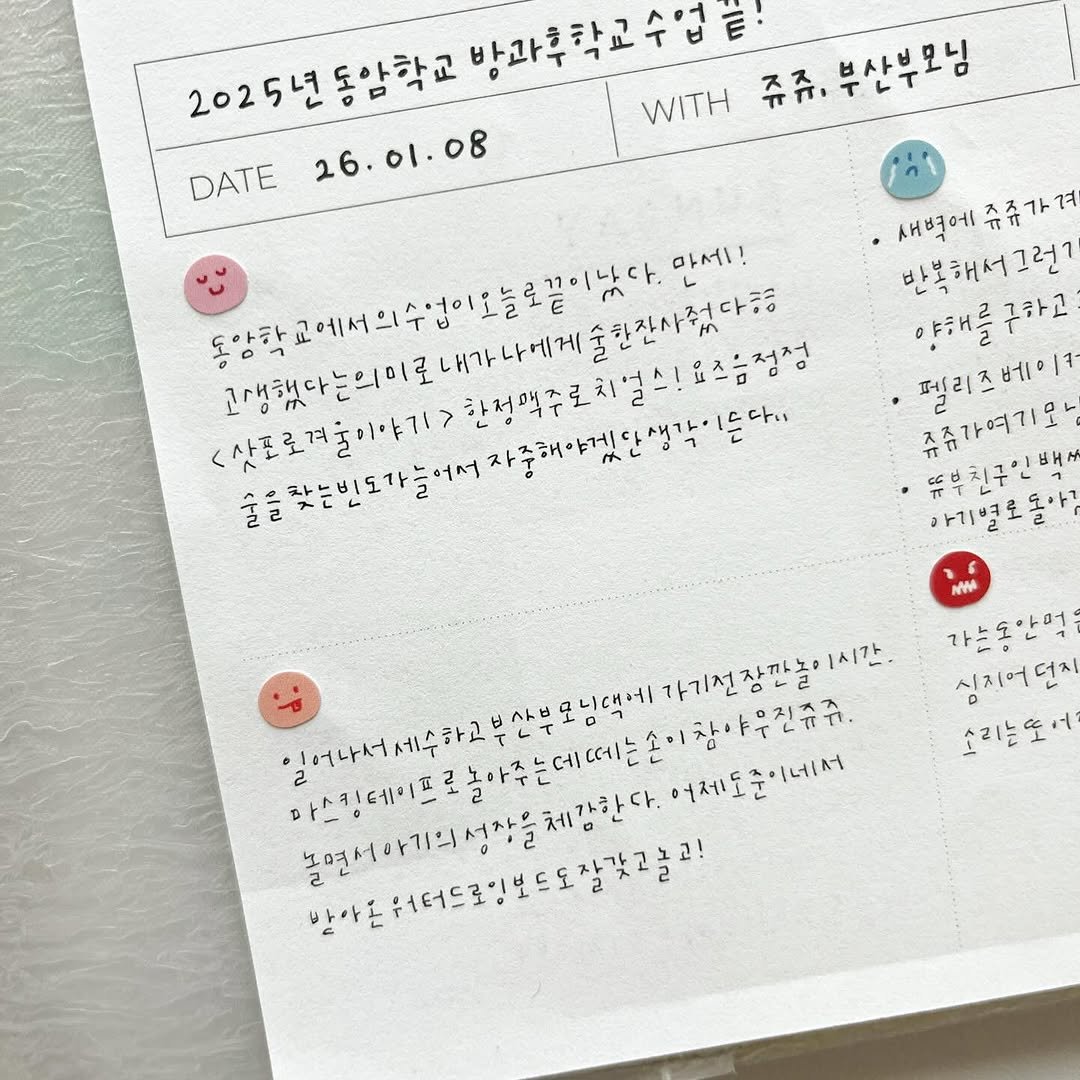 2025년 동암학교 방과후학교 수업 끝!
DATE 26.01.08
WITH 쥬쥬, 부산부모님
동암학교에서의 수업이 오늘로 끝이 났다. 만세!
고생했다는 의미로 내가 나에게 술 한잔 사줬다ㅎㅎ
<삿포로겨울이야기> 한정맥주로 치얼스! 요즈음 점점
술을 찾는 빈도가 늘어서 자중해야겠단 생각이 든다..
• 새벽에 쥬쥬가
반복해서 그런가
양해를 구하고
• 펠리즈베이커
쥬쥬가 여기 모닝
• 뚜부친구인 백
아기별로 돌아
일어나서 세수하고 부산부모님댁에 가기전 잠깐 놀이시간.
마스킹테이프로 놀아주는데 떼는 손이 참 야무진 쥬쥬.
놀면서 아기의 성장을 체감한다. 어제 도준이네서
받아온 워터드로잉보드도 잘 갖고 놀고!
가는동안 먹을
심지어 던지
소리는 또 어